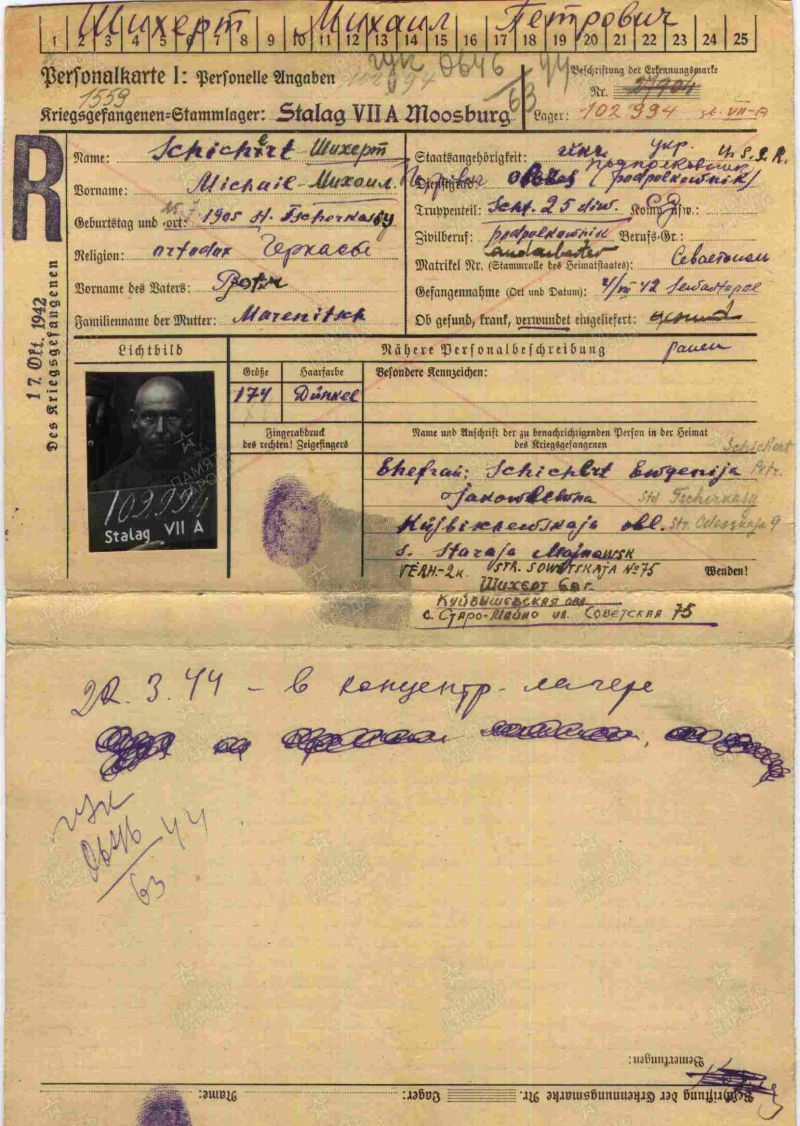 Шихерт Михаил Петрович
1 2 3 4 5 6 7 8 9 10 11 12 13 14 15 16 17 18 19 20 21 22 23 24 25
Personalkarte I: Personelle Angaben
102994
0646 44
63
Beschriftung der Erkennungsmarke
Nr. 27904
1559
Kriegsgefangenen-Stammlager: Stalag VII A Moosburg
Lager: 102994 st. VII-A
R
17. Okt. 1942
Des Kriegsgefangenen
Name: Schichert - Шихерт
Vorname: Michail - Михаил
Geburtstag und -ort: 1905 st. Tscherkassy
Религion: ortodox Черкасы
Vorname des Vaters: Petr
Familienname der Mutter: Marenitsch
Staatsangehörigkeit: укр. U.S.S.R.
Dienstgrad: (podpolkownik)
Truppenteil: 25 diw. Komp. usw.:
Zivilberuf: podpolkownik Berufs-Gr.:
Matrikel Nr. (Stammrolle des Heimatstaates): Севастополь
Gefangennahme (Ort und Datum): 4/VII 42 Sewastopol
Ob gesund, krank, verwundet eingeliefert: gesund
ранен
Lichtbild
Nähere Personalbeschreibung
Größe
Haarfarbe
Besondere Kennzeichen:
174
Dünkel
Fingerabdruck
des rechten! Zeigefingers
Name und Anschrift der zu benachrichtigenden Person in der Heimat
des Kriegsgefangenen
102994
Stalag VII A
Schichert
Petr.
Ehefrau: Schichert Ewgenija
Jakowlewna
Std Tscherkasy
Kujbischewskaja obl. Str. Odesskaja 9
s. Staraja Majnowsk
VERH-2K. STR. SOWETSKAJA №75
Wenden!
Шихерт Евг.
Куйбышевская обл
с. Старо-Майно ул. Советская 75
22.3.44 - в концентр. лагере
0646 44
63
Bemerkungen:
Beschriftung der Erkennungsmarke Nr. Lager: Name: